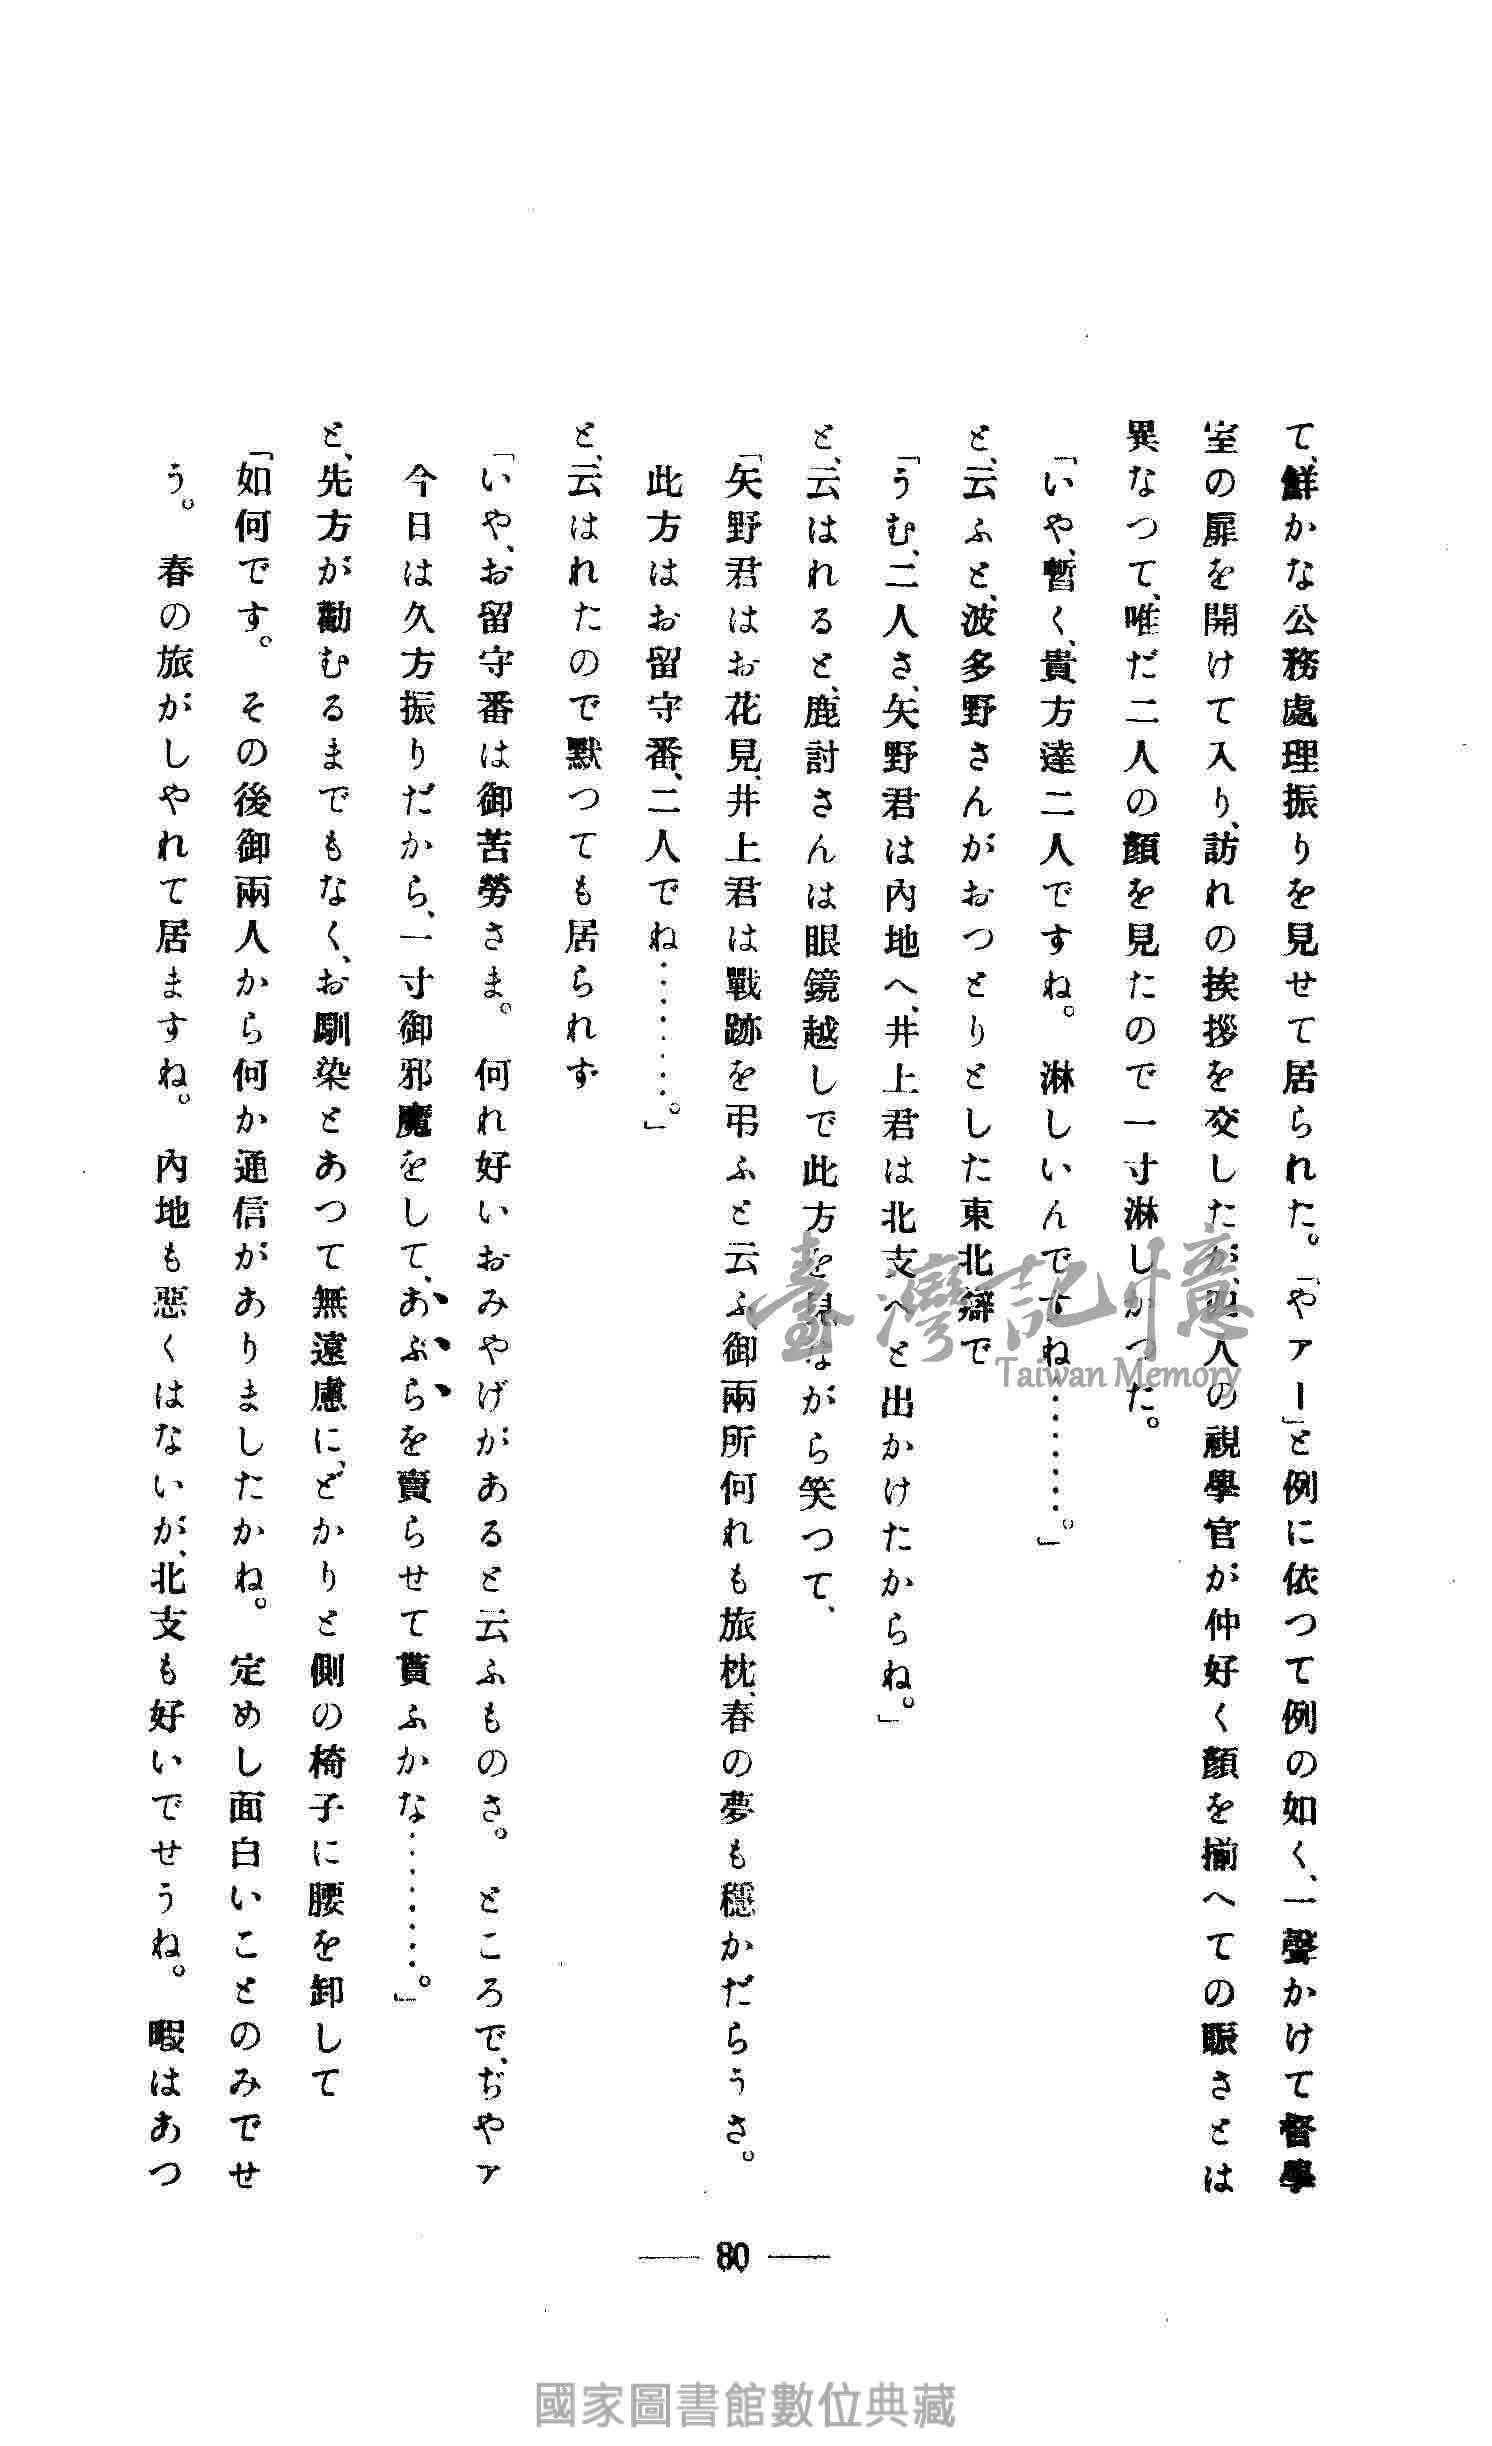 て、鮮かな公務處理振りを見せて居られた。「やアー」と例に依つて例の如く、一聲かけて督學
室の扉を開けて入り、訪れの挨拶を交したが、四人の視學官が仲好く顏を揃へての賑さとは
異なつて、唯だ二人の顏を見たので一寸淋しかつた。
「いや、暫く、貴方達二人ですね。淋しいんですね………。」
と、云ふと、波多野さんがおつとりとした東北辯で
「うむ、二人さ、矢野君は內地へ、井上君は北支へと出かけたからね。」
と、云はれると、鹿討さんは眼鏡越しで此方を見ながら笑つて、
「矢野君はお花見、井上君は戰跡を弔ふと云ふ、御兩所何れも旅枕、春の夢も穩かだらうさ。
此方はお留守番、二人でね………。」
と、云はれたので默つても居られず
「いや、お留守番は御苦勞さま。何れ好いおみやげがあると云ふものさ。ところで、ぢやア
今日は久方振りだから、一寸御邪魔をして、あぶらを賣らせて貰ふかな………。」
と、先方が勸むるまでもなく、お馴染とあつて無遠慮に、どかりと側の椅子に腰を卸して
「如何です。その後御兩人から何か通信がありましたかね。定めし面白いことのみでせ
う。春の旅がしやれて居ますね。內地も惡くはないが、北支も好いでせうね。暇はあつ
80
臺灣記憶
Taiwan Memory
國家圖書館數位典藏